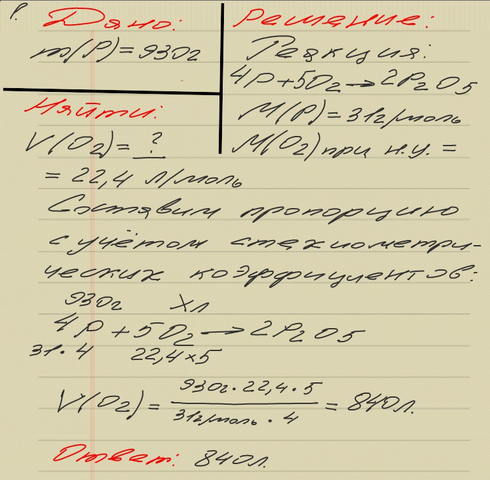 1.
Дано:
m(P) = 930г
Найти:
V(O₂) = ?
Решение:
Реакция:
4P + 5O₂ → 2P₂O5
M(P) = 31г/моль
M(O₂) при н.у. =
= 22,4 л/моль
Составим пропорцию
с учётом стехиометри-
ческих коэффициентов:
930г Xл
4P + 5O₂ → 2P₂O5
31·4 22,4×5
V(O₂) = 930г·22,4·5 / 31г/моль·4 = 840л.
Ответ: 840л.